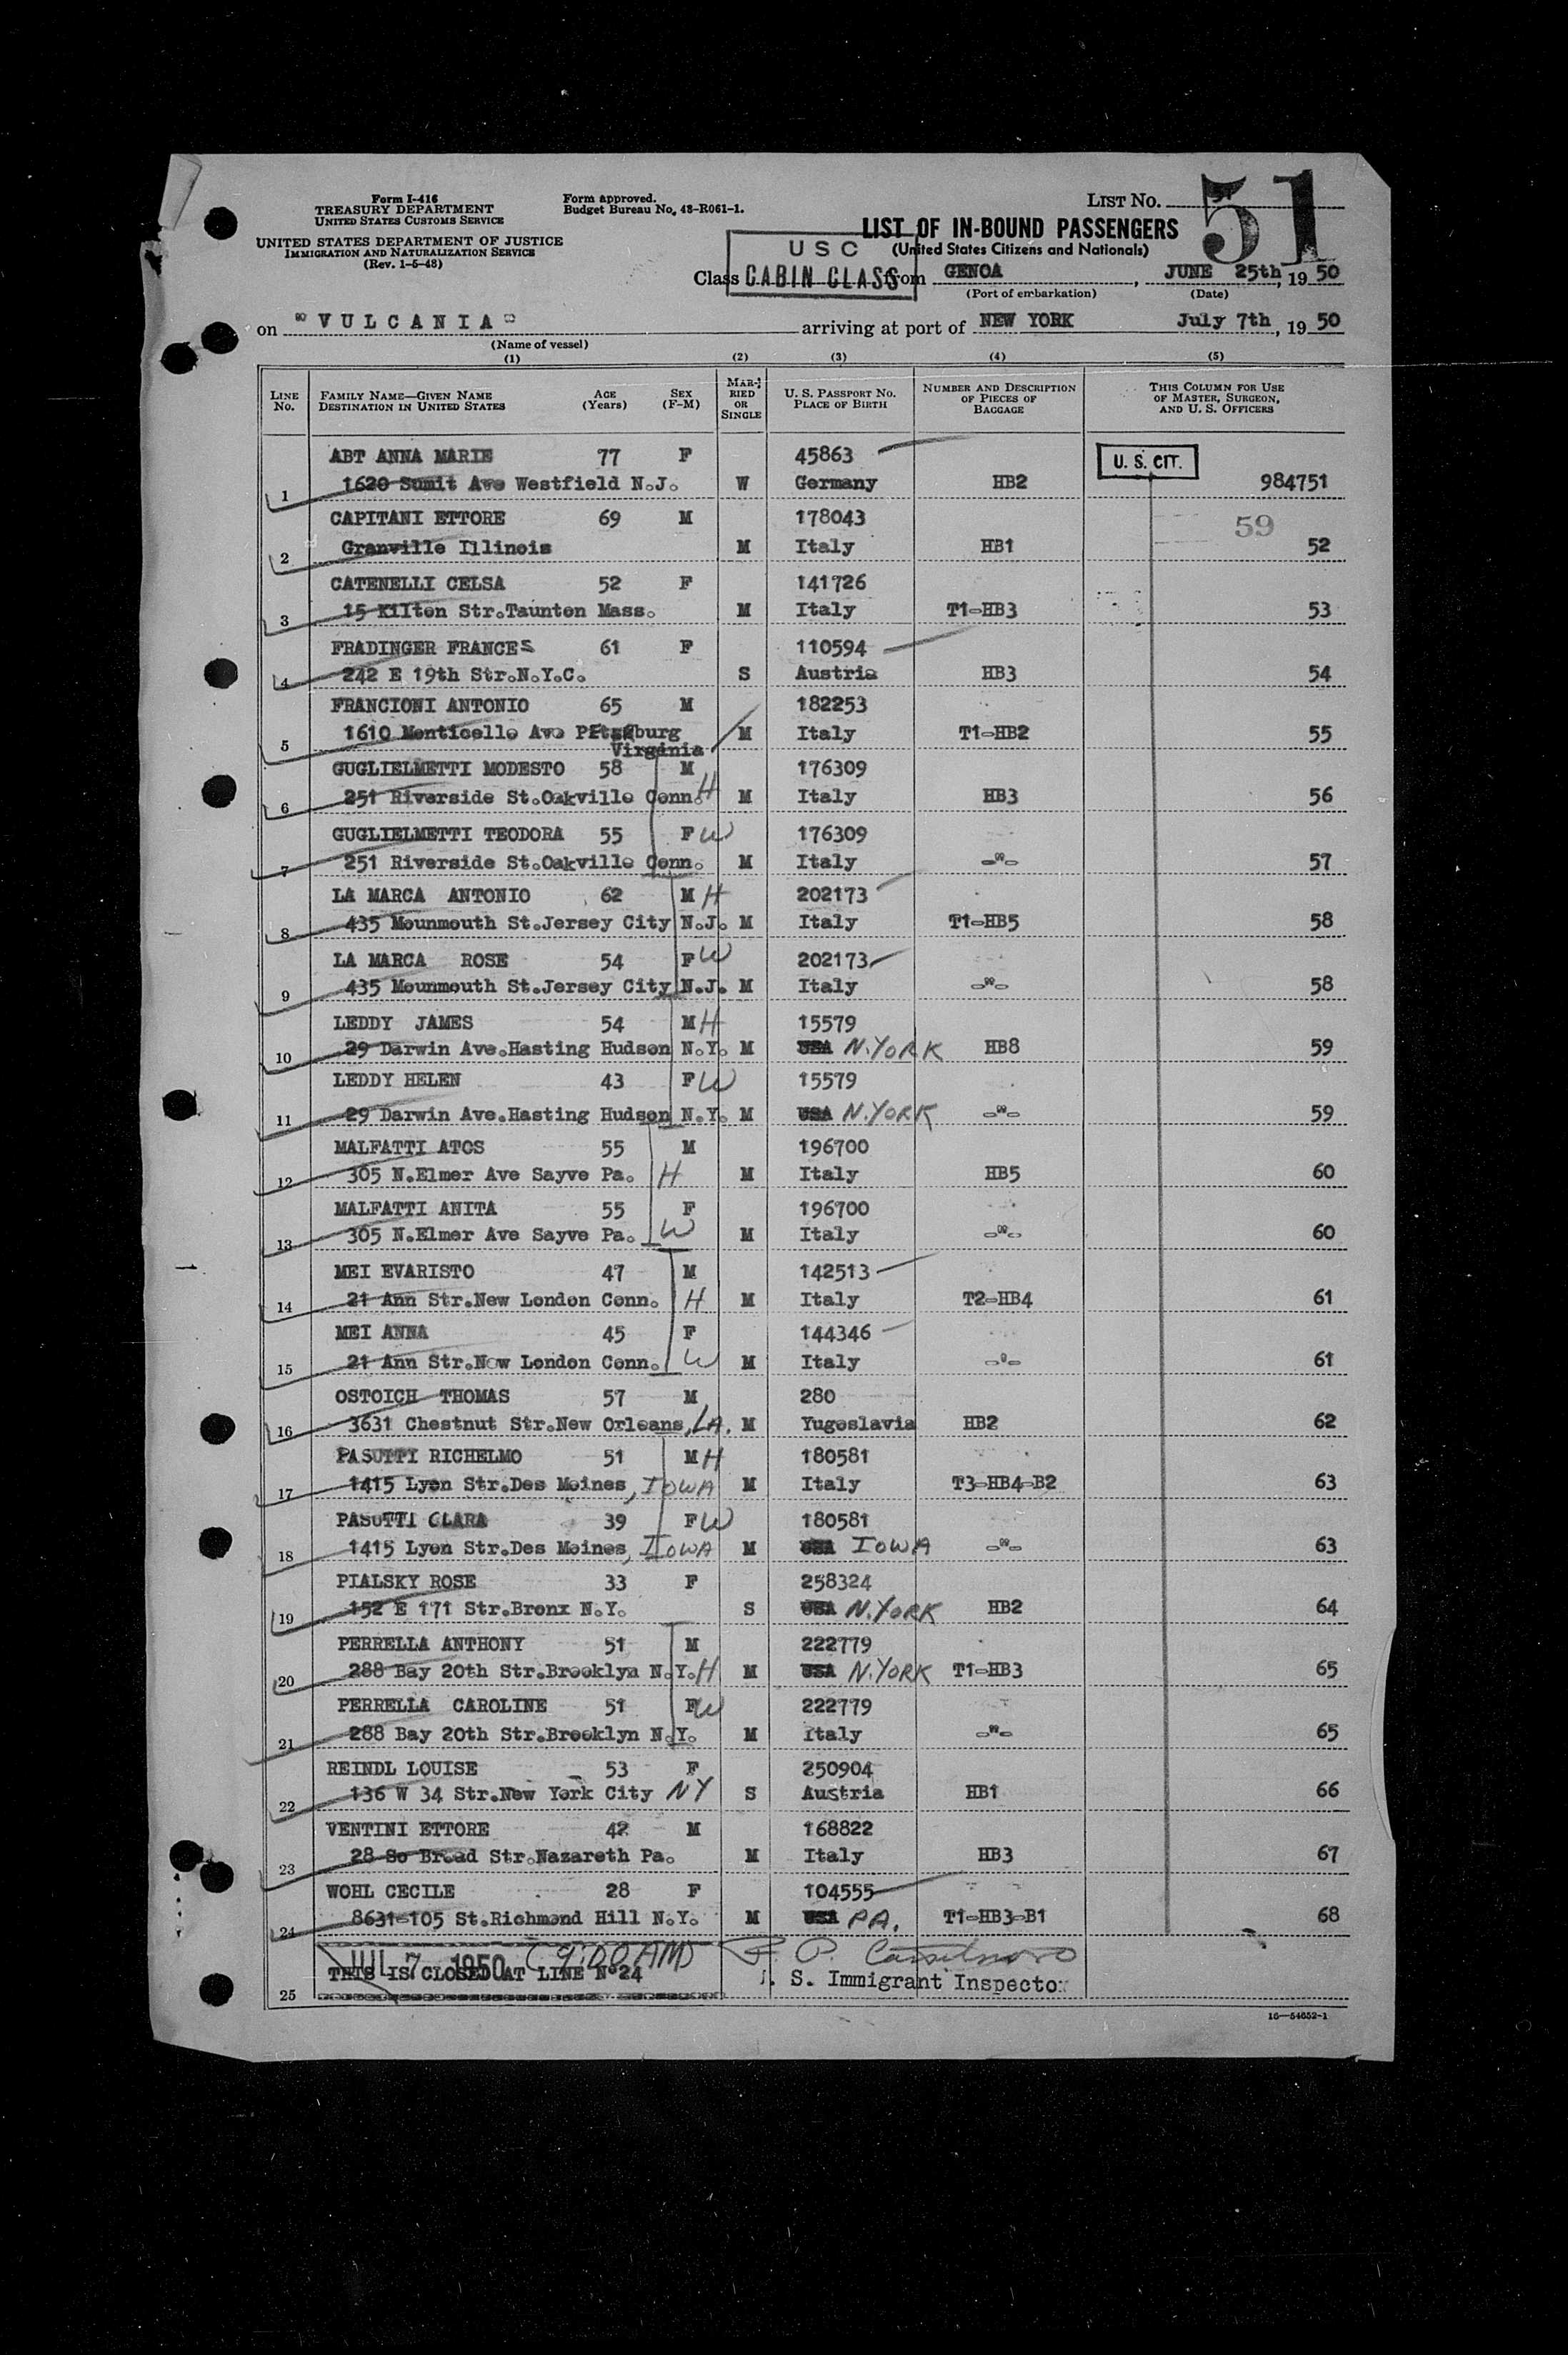 Form I-416
TREASURY DEPARTMENT
UNITED STATES CUSTOMS SERVICE
UNITED STATES DEPARTMENT OF JUSTICE
IMMIGRATION AND NATURALIZATION SERVICE
(Rev. 1-5-48)
Form approved.
Budget Bureau No. 43-R061-1.
LIST No. 51
LIST OF IN-BOUND PASSENGERS
(United States Citizens and Nationals)
USC
Class CABIN CLASS from GENOA, JUNE 25th, 1950
(Port of embarkation) (Date)
on "VULCANIA" arriving at port of NEW YORK July 7th, 1950
(Name of vessel)
(1) (2) (3) (4) (5)
LINE No. FAMILY NAME—GIVEN NAME DESTINATION IN UNITED STATES AGE (Years) SEX (F-M) MARRIED OR SINGLE U. S. PASSPORT NO. PLACE OF BIRTH NUMBER AND DESCRIPTION OF PIECES OF BAGGAGE THIS COLUMN FOR USE OF MASTER, SURGEON, AND U. S. OFFICERS
ABT ANNA MARIE 77 F 45863 U. S. CIT.
1 1620 Sumit Ave Westfield N.J. W Germany HB2 984751
CAPITANI ETTORE 69 M 178043 59
2 Granville Illinois M Italy HB1 52
CATENELLI CELSA 52 F 141726
3 15 Kilton Str.Taunton Mass. M Italy T1-HB3 53
FRADINGER FRANCES 61 F 110594
4 242 E 19th Str.N.Y.C. S Austria HB3 54
FRANCIONI ANTONIO 65 M 182253
5 1610 Monticello Ave M Italy T1-HB2 55
Virginia
GUGLIELMETTI MODESTO 58 M 176309
6 251 Riverside St.Oakville Conn. H M Italy HB3 56
GUGLIELMETTI TEODORA 55 F W 176309
7 251 Riverside St.Oakville Conn. M Italy -"- 57
LA MARCA ANTONIO 62 M H 202173
8 435 Mounmouth St.Jersey City N.J. M Italy T1-HB5 58
LA MARCA ROSE 54 F W 202173
9 435 Mounmouth St.Jersey City N.J. M Italy -"- 58
LEDDY JAMES 54 M H 15579
10 29 Darwin Ave.Hasting Hudson N.Y. M USA N.YORK HB8 59
LEDDY HELEN 43 F W 15579
11 29 Darwin Ave.Hasting Hudson N.Y. M USA N.YORK -"- 59
MALFATTI ATOS 55 M 196700
12 305 N.Elmer Ave Sayve Pa. H M Italy HB5 60
MALFATTI ANITA 55 F 196700
13 305 N.Elmer Ave Sayve Pa. W M Italy -"- 60
MEI EVARISTO 47 M 142513
14 21 Ann Str.New London Conn. H M Italy T2-HB4 61
MEI ANNA 45 F 144346
15 21 Ann Str.New London Conn. W M Italy -"- 61
OSTOICH THOMAS 57 M 280
16 3631 Chestnut Str.New Orleans, LA. M Yugoslavia HB2 62
PASUTTI RICHELMO 51 M H 180581
17 1415 Lyon Str.Des Moines, IOWA M Italy T3-HB4-B2 63
PASUTTI CLARA 39 F W 180581
18 1415 Lyon Str.Des Moines, IOWA M USA IOWA -"- 63
PIALSKY ROSE 33 F 258324
19 152 E 171 Str.Bronx N.Y. S USA N.YORK HB2 64
PERRELLA ANTHONY 51 M 222779
20 288 Bay 20th Str.Brooklyn N.Y. H M USA N.YORK T1-HB3 65
PERRELLA CAROLINE 51 F W 222779
21 288 Bay 20th Str.Brooklyn N.Y. M Italy -"- 65
REINDL LOUISE 53 F 250904
22 136 W 34 Str.New York City NY S Austria HB1 66
VENTINI ETTORE 42 M 168822
23 28 So Broad Str.Nazareth Pa. M Italy HB3 67
WOHL CECILE 28 F 104555
24 8631-105 St.Richmond Hill N.Y. M USA PA. T1-HB3-B1 68
JUL 7 1950 (9:00 AM)
THIS IS CLOSED AT LINE N°24
. S. Immigrant Inspector
25
16—54652-1